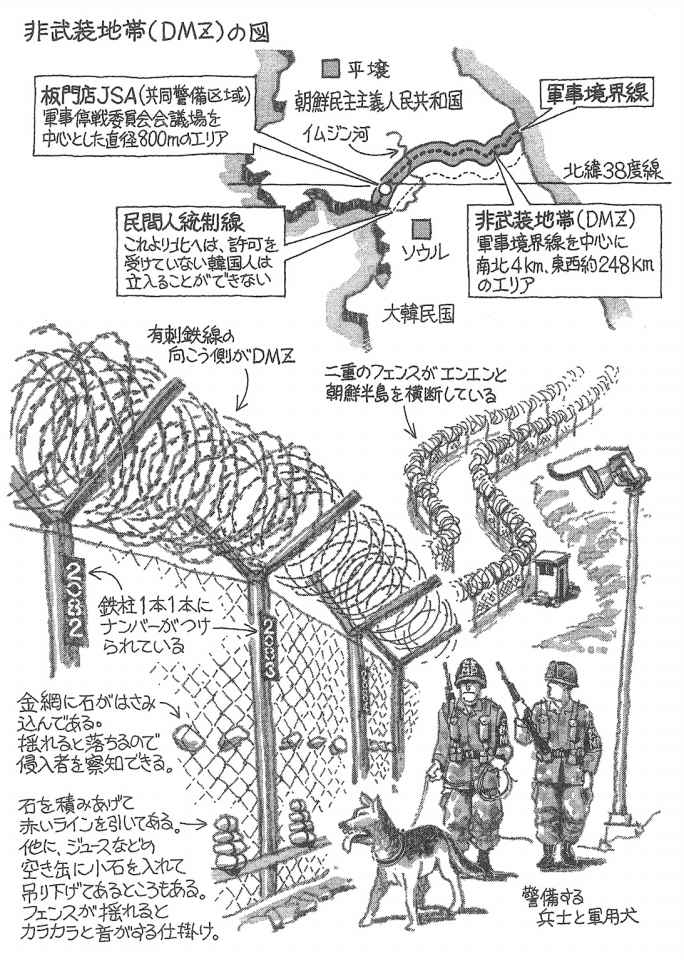 非武装地帯(DMZ)の図
平壌
朝鮮民主主義人民共和国
イムジン河
板門店JSA(共同警備区域)
軍事停戦委員会会議場を
中心とした直径800mのエリア
軍事境界線
北緯38度線
民間人統制線
これより北へは、許可を
受けていない韓国人は
立入ることができない
ソウル
非武装地帯(DMZ)
軍事境界線を中心に
南北4km、東西約248km
のエリア
大韓民国
有刺鉄線の
向こう側がDMZ
二重のフェンスがエンエンと
朝鮮半島を横断している
2082
鉄柱1本1本に
ナンバーがつけ
られている
2083
金網に石がはさみ
込んである。
揺れると落ちるので
侵入者を察知できる。
石を積みあげて
赤いラインを引いてある。
他に、ジュースなどの
空き缶に小石を入れて
吊り下げてあるところもある。
フェンスが揺れると
カラカラと音がする仕掛け。
警備する
兵士と軍用犬